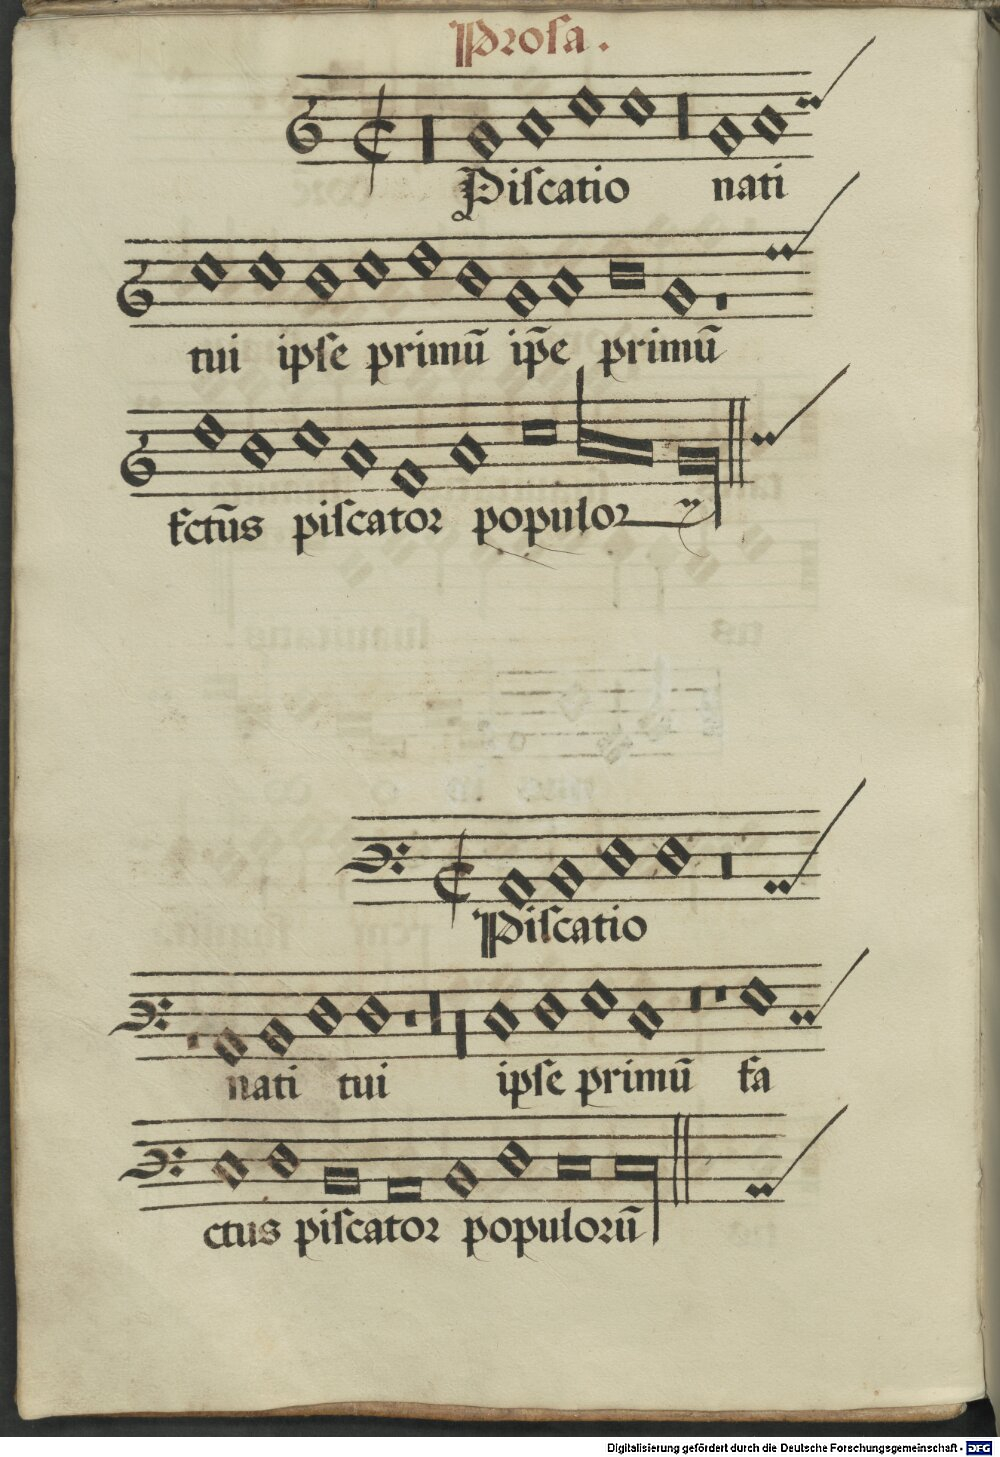 Prosa.
Piſcatio nati
tui ipſe primū ip̄e primū
fctūs piſcator populor
Piſcatio
nati tui ipſe primū fa
ctus piſcator populorū
Digitalisierung gefördert durch die Deutsche Forschungsgemeinschaft - DFG